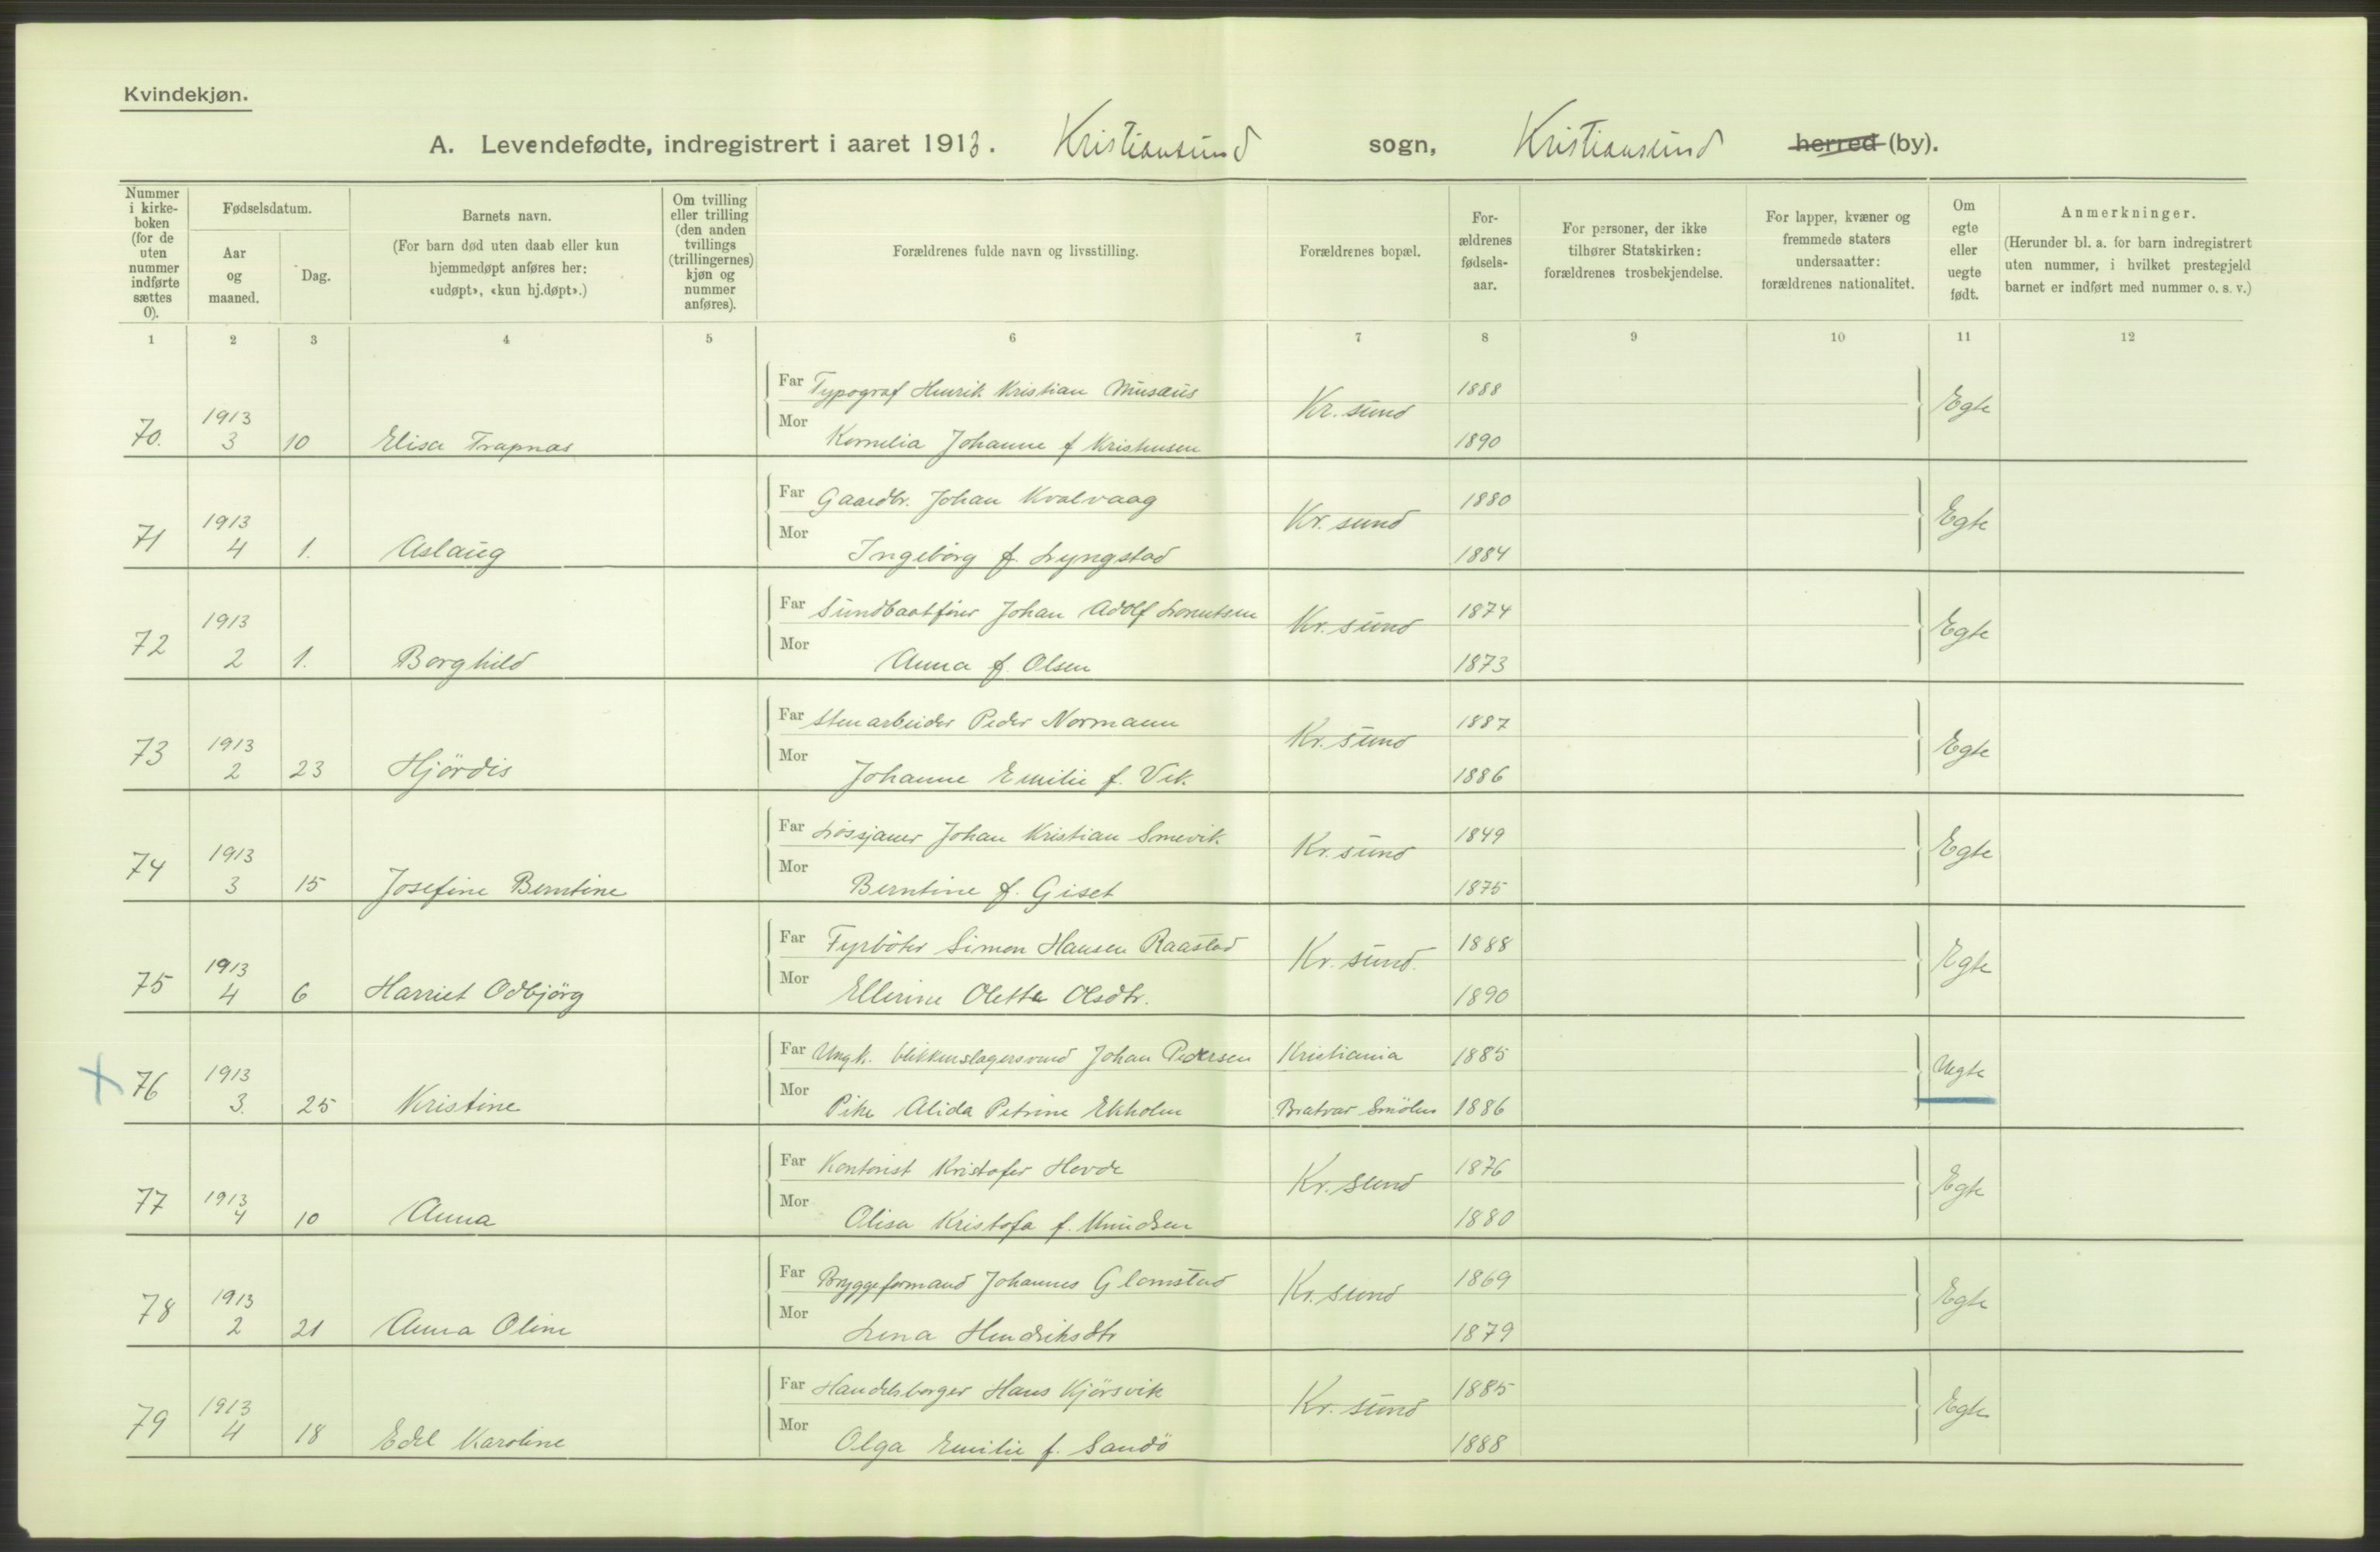 Kvindekjøn.
A. Levendefødte, indregistrert i aaret 1913. Kristiansund sogn, Kristiansund herred (by).
Nummer i kirke-boken (for de uten nummer indførte sættes 0).
Fødselsdatum.
Aar og maaned.
Dag.
Barnets navn.
(For barn død uten daab eller kun hjemmedøpt anføres her: «udøpt», «kun hj.døpt».)
Om tvilling eller trilling (den anden tvillings (trillingernes) kjøn og nummer anføres).
Forældrenes fulde navn og livsstilling.
Forældrenes bopæl.
For-ældrenes fødsels-aar.
For personer, der ikke tilhører Statskirken: forældrenes trosbekjendelse.
For lapper, kvæner og fremmede staters undersaatter: forældrenes nationalitet.
Om egte eller uegte født.
Anmerkninger.
(Herunder bl. a. for barn indregistrert uten nummer, i hvilket prestegjeld barnet er indført med nummer o. s. v.)
1 2 3 4 5 6 7 8 9 10 11 12
Far Typograf Henrik Kristian Musæus 1888
70. 1913 3 10 Elisa Trapnas Kr. sund Egte
Mor Kornelia Johanne f Kristensen 1890
Far Gaardbr. Johan Kvalvaag 1880
71 1913 4 1. Aslaug Kr. sund Egte
Mor Ingeborg f. Lyngstad 1884
Far Sundbaatfører Johan Adolf Lorentsen 1874
72 1913 2 1. Borghild Kr. sund Egte
Mor Anna f. Olsen 1873
Far Stenarbeider Peder Normann 1887
73 1913 2 23 Hjördis Kr. sund Egte
Mor Johanne Emilie f. Vik. 1886
Far Løssjauer Johan Kristian Smevik 1849
74 1913 3 15 Josefine Berntine Kr. sund Egte
Mor Berntine f. Giset 1875
Far Fyrböter Simon Hansen Raastad 1888
75 1913 4 6 Harriet Odbjörg Kr. sund. Egte
Mor Ellerine Olette Olsdtr. 1890
Far Ungk. blikkenslagersvend Johan Pedersen Kristiania 1885
76 1913 3. 25 Kristine Uegte
Mor Pike Alida Petrine Ekholm Bratvær Smölen 1886
Far Kontorist Kristofer Hovde 1876
77 1913 4 10 Anna Kr. sund Egte
Mor Olisa Kristofa f. Knudsen 1880
Far Bryggeformand Johannes Glomstad 1869
78 1913 2 21 Anna Oline Kr. sund Egte
Mor Lena Hendriksdtr 1879
Far Handelsborger Hans Kjörsvik 1885
79 1913 4 18 Edel Karoline Kr. sund Egte
Mor Olga Emilie f. Sandö 1888